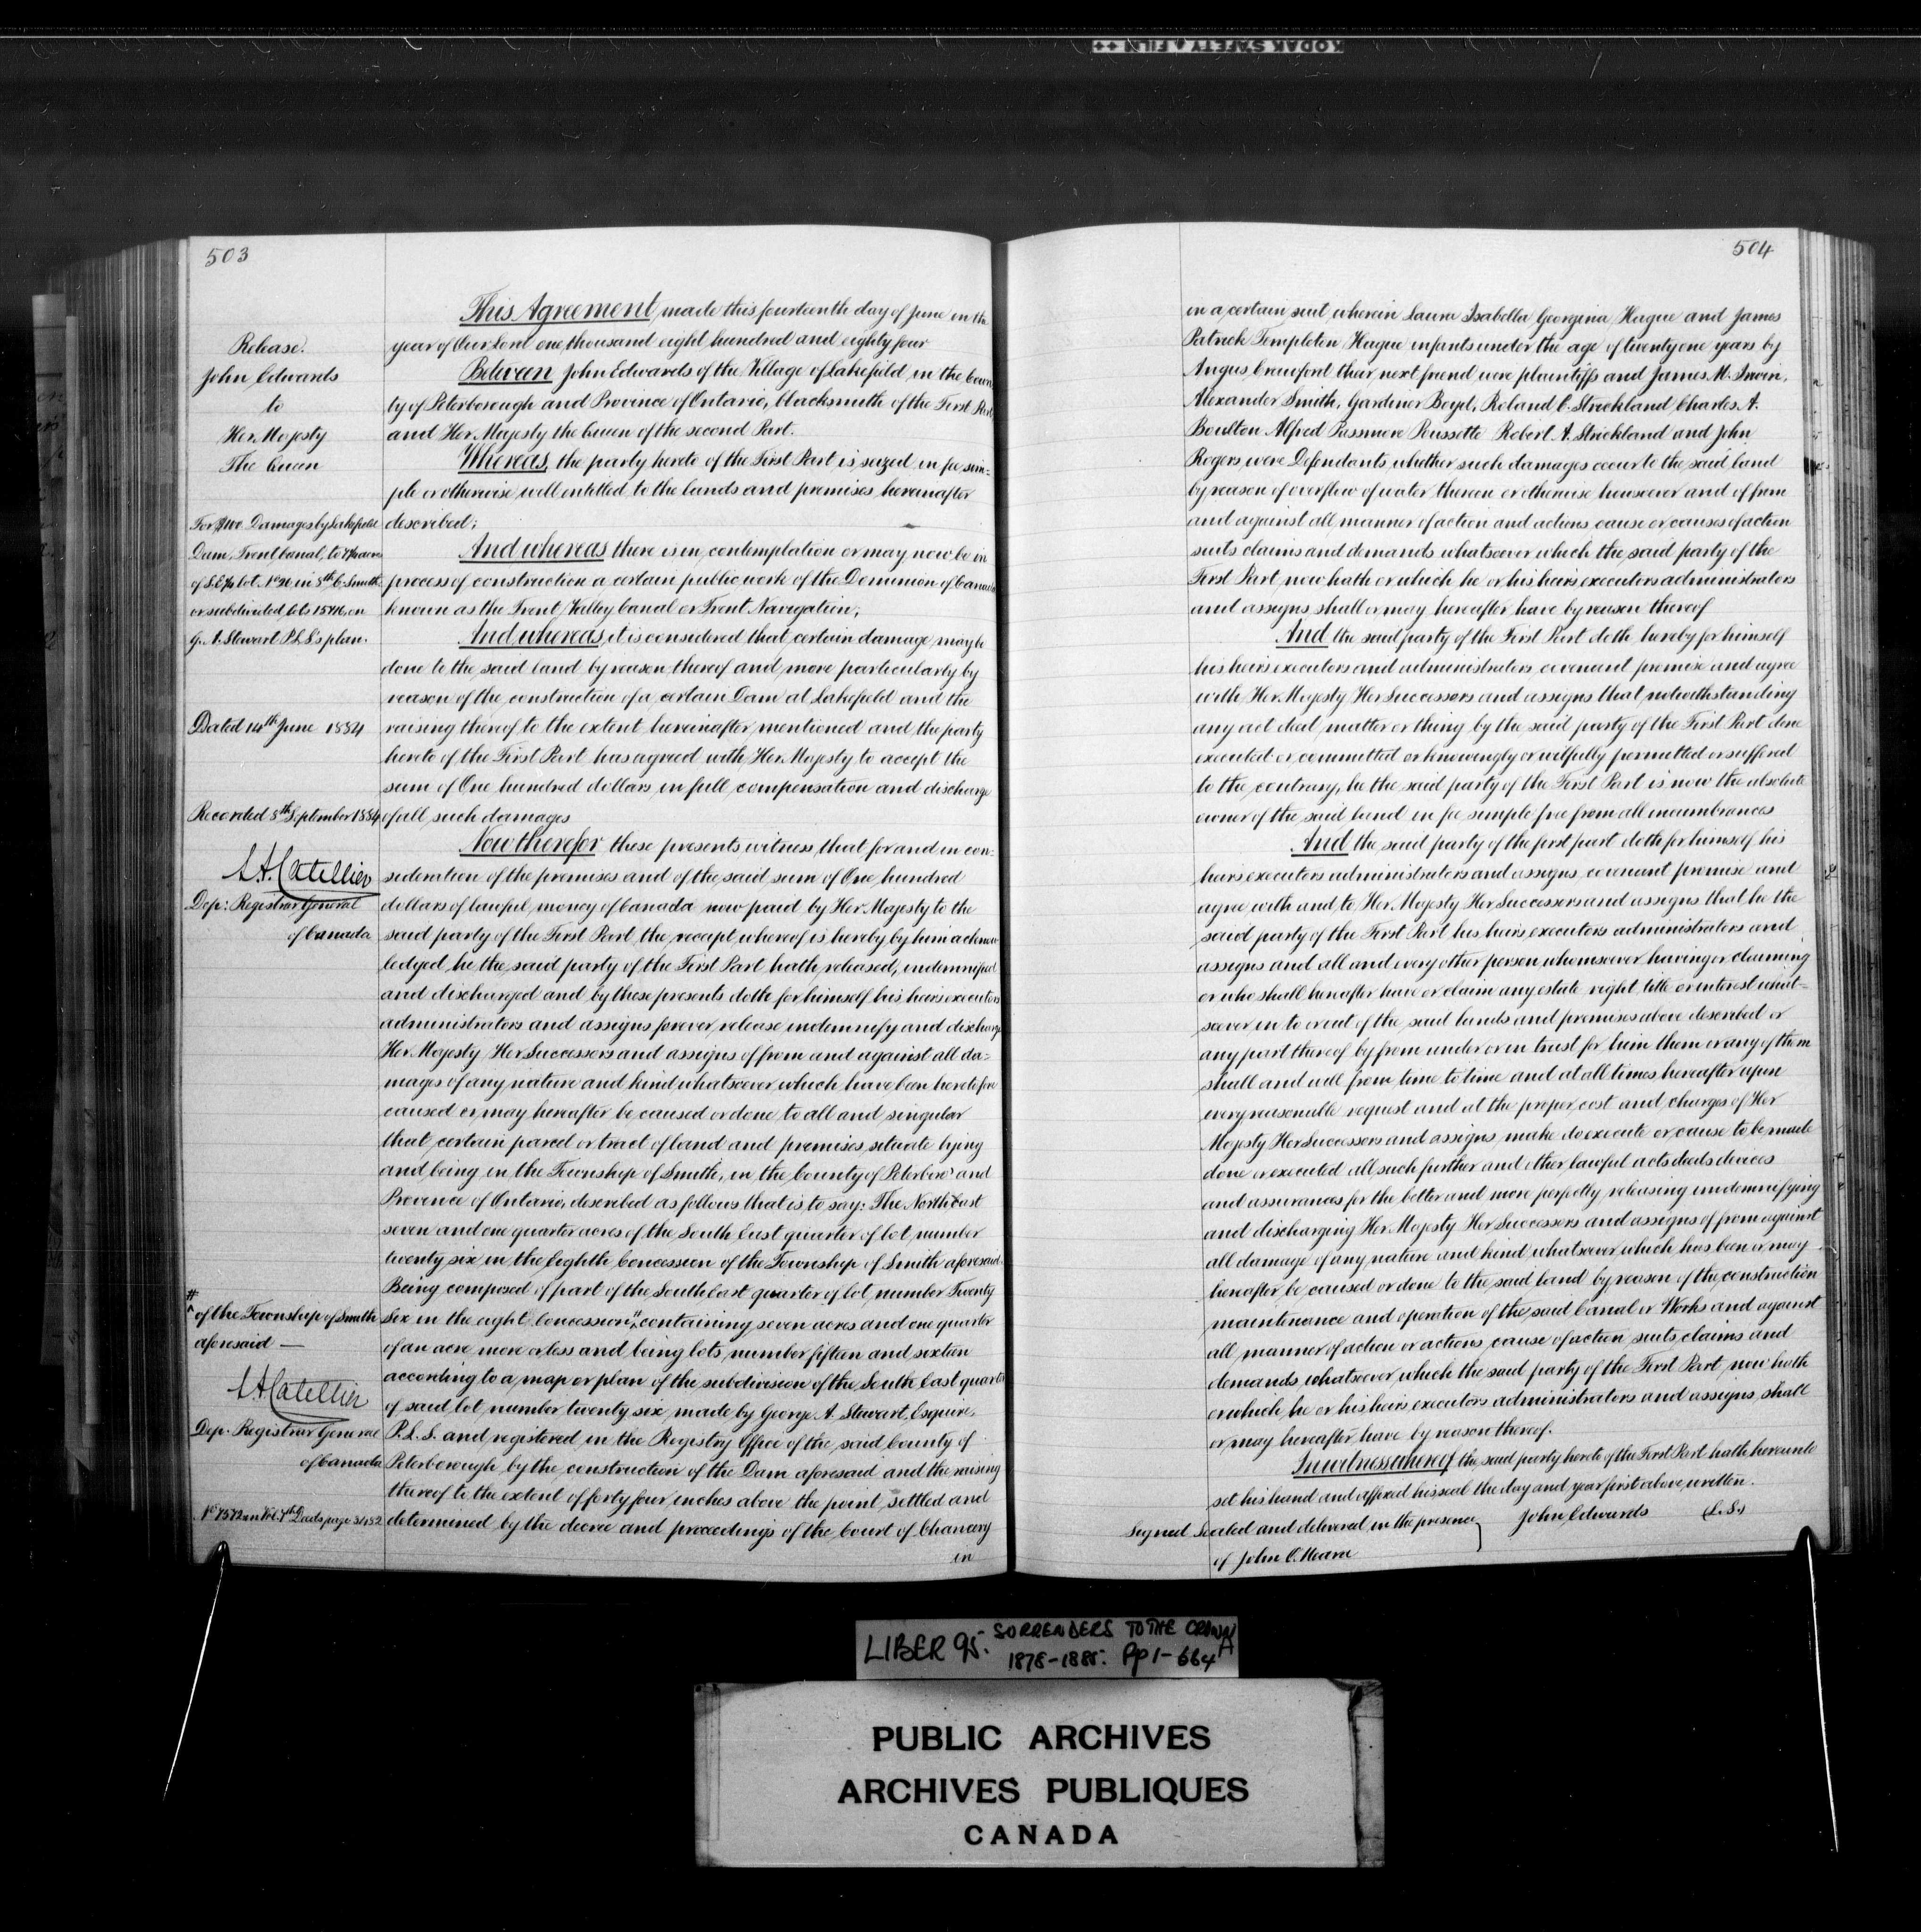 KODAK SAFETY FILM
503
Release.
John Edwards
to
Her Majesty
The Queen
For $100. Damages by Lakefield
Dam, Trent Canal, to 7¼ acres
of S.E.¼ lot No 26 in 8th C. Smith
or subdivided lots 15 & 16, on
G. A. Stewart P.L.S's plan.
Dated 14th June 1884
Recorded 8th September 1884
L.A. Catellier
Dep: Registrar General
of Canada
# of the Township of Smith
aforesaid —
L.A. Catellier
Dep. Registrar General
of Canada
No 7572 in Vol. 7th Deeds page
This Agreement, made this fourteenth day of June in the
year of Our Lord one thousand eight hundred and eighty four
Between John Edwards of the Village of Lakefield, in the Coun
ty of Peterborough and Province of Ontario, blacksmith of the First Part
and Her Majesty the Queen of the second Part.
Whereas, the party hereto of the First Part is seized in fee sim-
ple or otherwise well entitled to the lands and premises hereinafter
described;
And whereas there is in contemplation or may now be in
process of construction a certain public work of the Dominion of Canada
known as the Trent Valley Canal or Trent Navigation;
And whereas, it is considered that certain damage may be
done to the said land by reason thereof and more particularly by
reason of the construction of a certain Dam at Lakefield and the
raising thereof to the extent hereinafter mentioned and the party
hereto of the First Part has agreed with Her Majesty to accept the
sum of One hundred dollars in full compensation and discharge
of all such damages
Now therefor these presents witness that for and in con-
sideration of the premises and of the said sum of One hundred
dollars of lawful money of Canada now paid by Her Majesty to the
said party of the First Part, the receipt whereof is hereby by him acknow
ledged, he the said party of the First Part hath released, indemnified
and discharged and by these presents doth for himself his heirs executors
administrators and assigns forever, release indemnify and discharge
Her Majesty Her Successors and assigns of from and against all da-
mages of any nature and kind whatsoever which have been heretofore
caused or may hereafter be caused or done to all and singular
that certain parcel or tract of land and premises, situate lying
and being in the Township of Smith, in the County of Peterboro' and
Province of Ontario, described as follows that is to say: The North East
seven and one quarter acres of the South East quarter of lot number
twenty six in the Eighth Concession of the Township of Smith aforesaid.
Being composed of part of the South East quarter of lot number Twenty
Six in the eight Concession # containing seven acres and one quarter
of an acre more or less and being lots number fifteen and sixteen
according to a map or plan of the subdivision of the South East quarter
of said lot number twenty six made by George A. Stewart, Esquire,
P.L.S. and registered in the Registry Office of the said County of
Peterborough by the construction of the Dam aforesaid and the raising
thereof to the extent of forty four inches above the point settled and
determined by the decree and proceedings of the Court of Chancery
in
504
in a certain suit wherein Laura Isabella Georgina Hague and James
Patrick Templeton Hague infants under the age of twenty one years by
Angus Crawford their next friend were plaintiffs and James M. Irwin,
Alexander Smith, Gardiner Boyd, Roland C. Strickland Charles A.
Boulton Alfred Passmore Poussette Robert A. Strickland and John
Rogers were Defendants whether such damages occur to the said land
by reason of overflow of water thereon or otherwise howsoever and of from
and against all manner of action and actions cause or causes of action
suits claims and demands whatsoever which the said party of the
First Part now hath or which he or his heirs executors administrators
and assigns shall or may hereafter have by reason thereof
And the said party of the First Part doth hereby for himself
his heirs executors and administrators, covenant promise and agree
with Her Majesty Her Successors and assigns that notwithstanding
any act deed matter or thing by the said party of the First Part done
executed or committed or knowingly or wilfully permitted or suffered
to the contrary, he the said party of the First Part is now the absolute
owner of the said land in fee simple free from all incumbrances
And the said party of the first part doth for himself his
heirs executors administrators and assigns covenant promise and
agree with and to Her Majesty Her Successors and assigns that he the
said party of the First Part his heirs, executors administrators and
assigns and all and every other person whomsoever having or claiming
or who shall hereafter have or claim any estate right title or interest what-
soever in to or out of the said lands and premises above described or
any part thereof by from under or in trust for him them or any of them
shall and will from time to time and at all times hereafter upon
every reasonable request and at the proper cost and charges of Her
Majesty Her Successors and assigns, make do execute or cause to be made
done or executed all such further and other lawful acts deeds devices
and assurances for the better and more perfectly releasing indemnifying
and discharging Her Majesty Her Successors and assigns of from against
all damage of any nature and kind whatsoever which has been or may
hereafter be caused or done to the said land by reason of the construction
maintenance and operation of the said Canal or Works and against
all manner of action or actions, cause of action suits, claims and
demands whatsoever which the said party of the First Part, now hath
or which he or his heirs, executors administrators and assigns, shall
or may hereafter have by reason thereof.
In witness whereof the said party hereto of the First Part hath hereunto
set his hand and affixed his seal the day and year first above written.
Signed Sealed and delivered in the presence } John Edwards (L.S.)
of John O'Meara
LIBER 95. SURRENDERS TO THE CROWN
1878-1885. Pp 1-664
PUBLIC ARCHIVES
ARCHIVES PUBLIQUES
CANADA